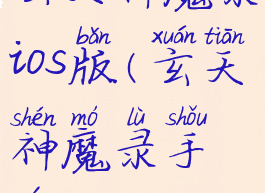 bǎn xuán tiān
iOS版(玄天
shén mó lù shǒu
神魔录手